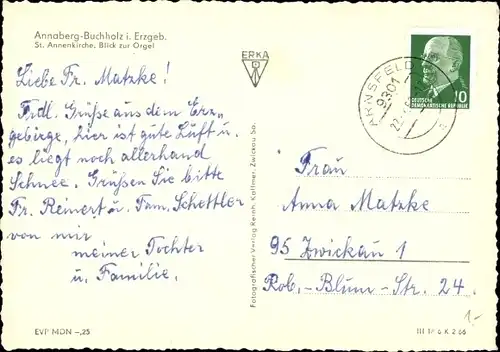 Annaberg-Buchholz i. Erzgeb.
St. Annenkirche, Blick zur Orgel
ERKA
Liebe Fr. Matzke!
Frdl. Grüße aus dem Erz„
gebirge, hier ist gute Luft u.
es liegt noch allerhand
Schnee. Grüßen Sie bitte
Fr. Reinert u. Fam. Schettler
von mir
meiner Tochter
u. Familie.
EVP MDN -,25
Fotografischer Verlag Reinh. Kallmer, Zwickau Sa.
ARNSFELD
9301
22.
DEUTSCHE
DEMOKRATISCHE REPUBLIK
10
Frau
Anna Matzke
95 Zwickau 1
Rob.-Blum-Str. 24.
1,-